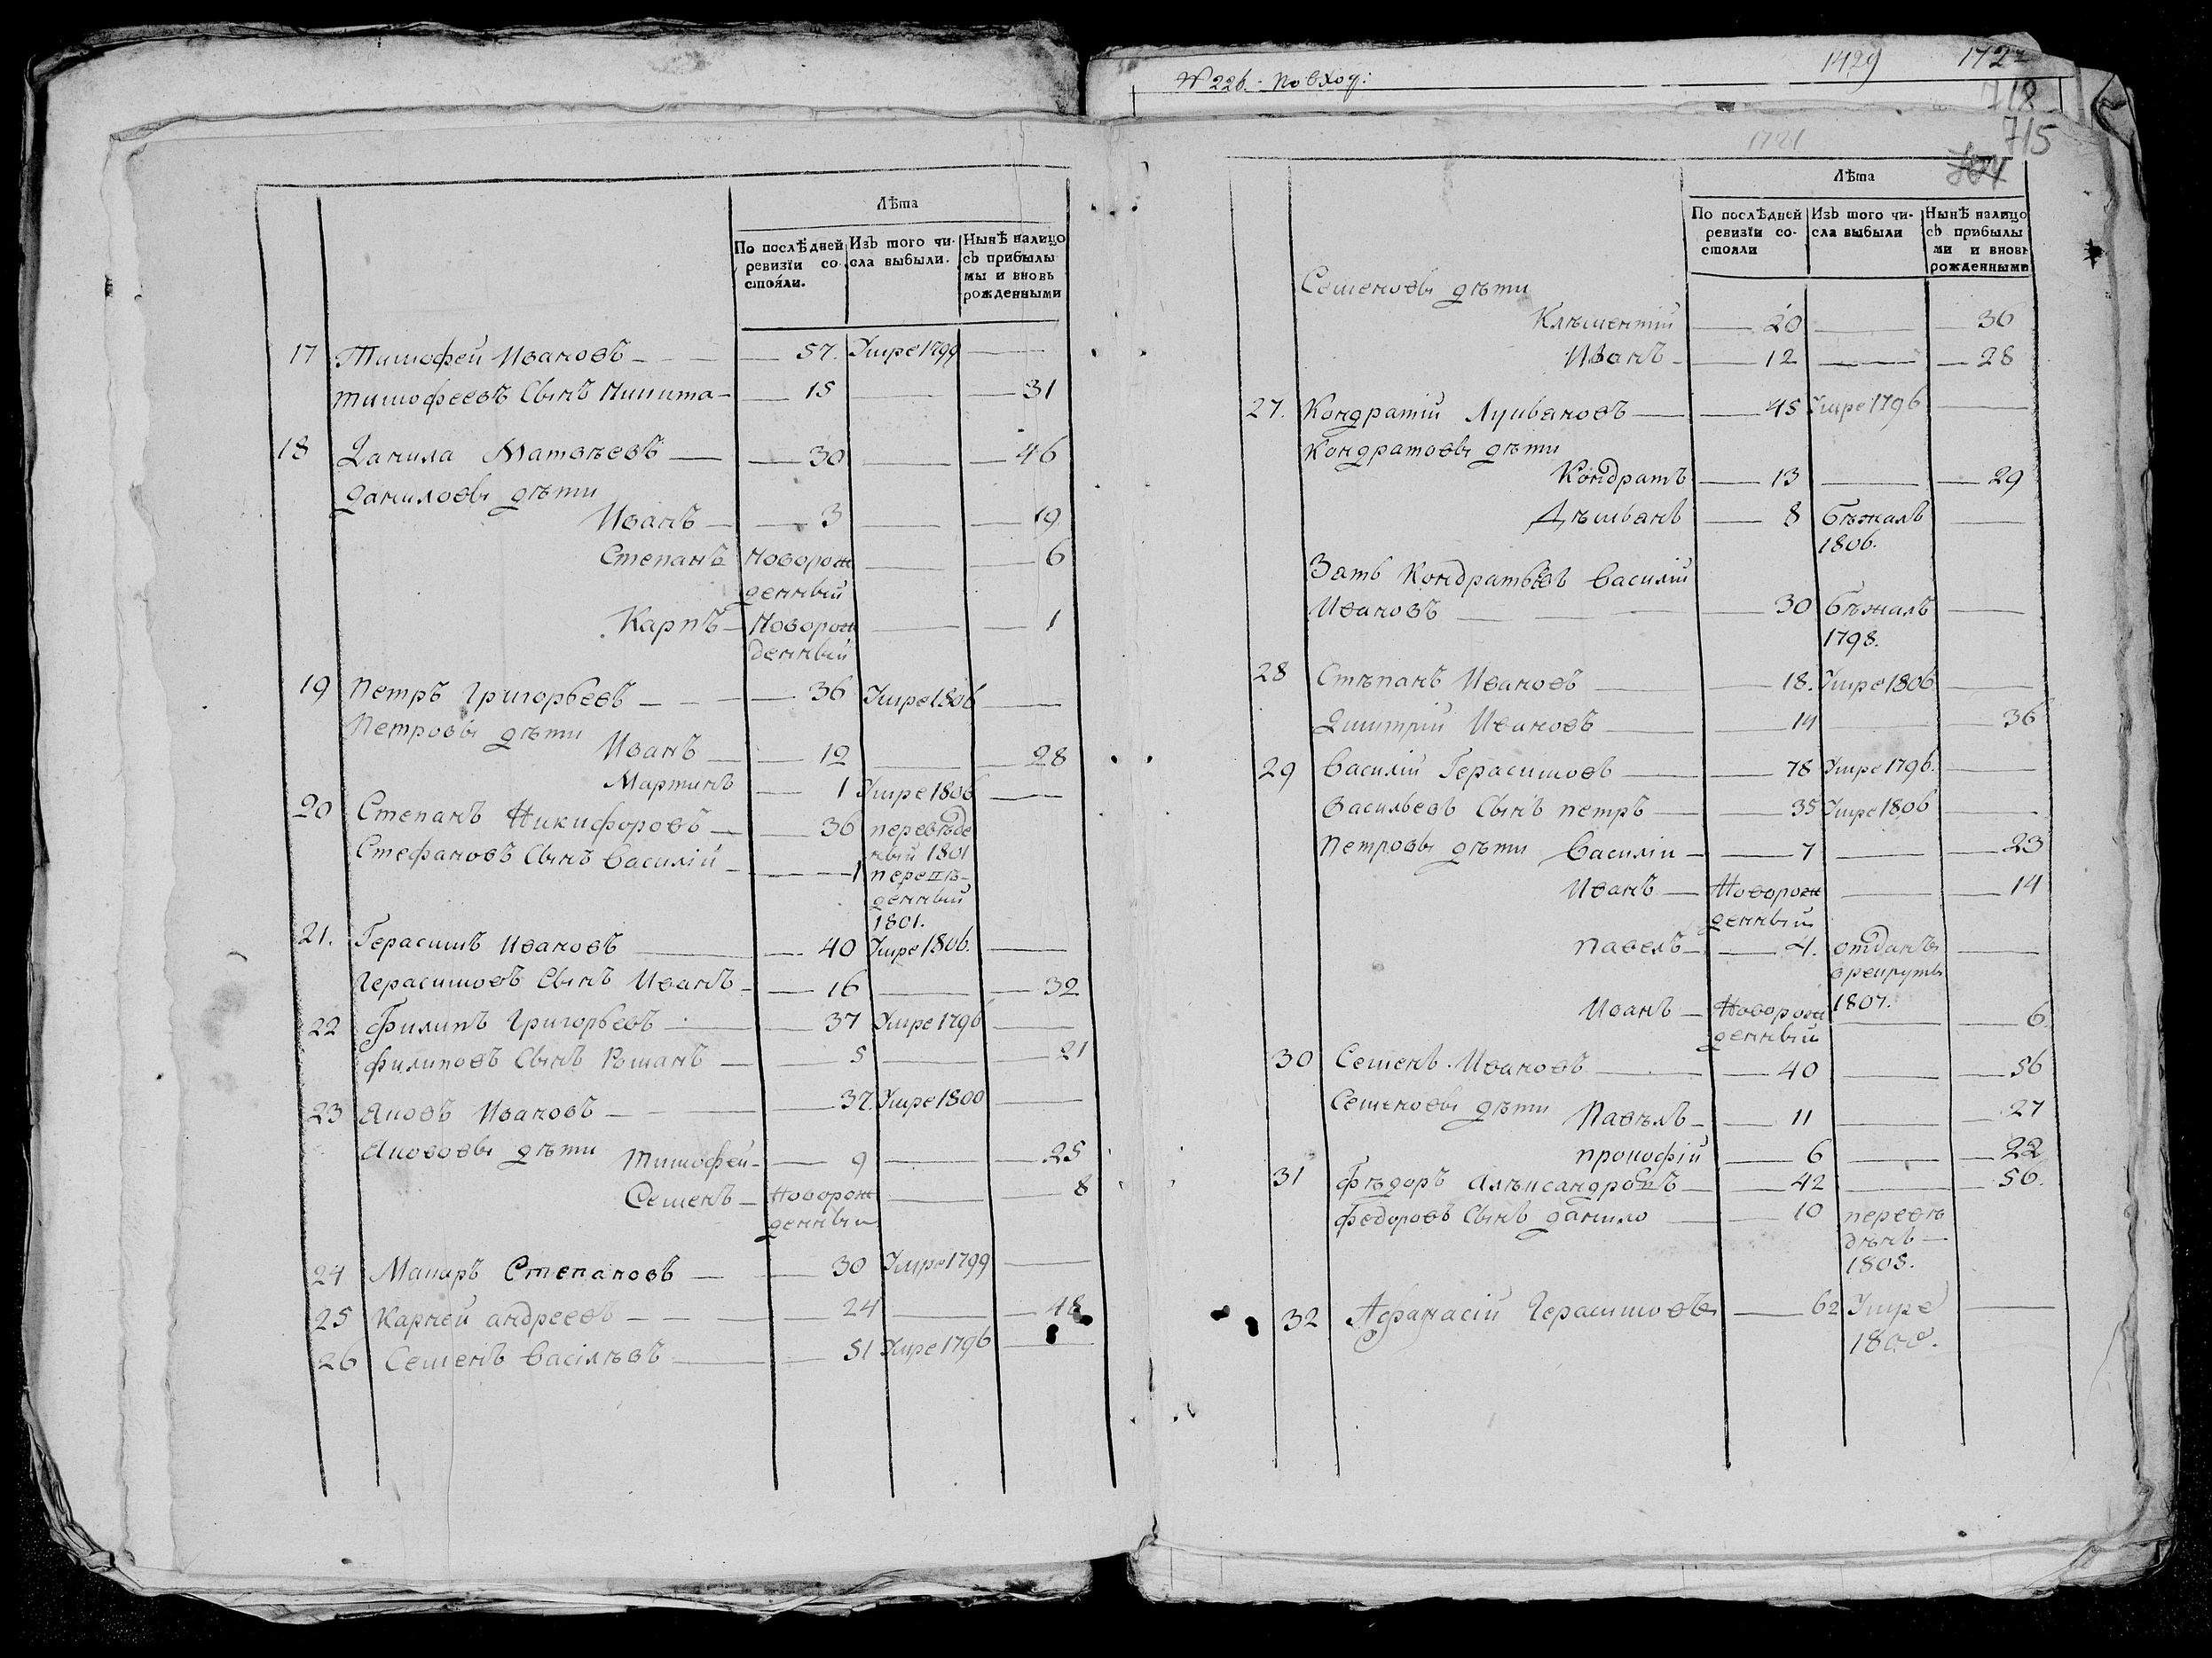 Лѣта
По послѣдней ревизїи со-стоя́ли.
Изъ того чи-сла выбыли.
Нынѣ налицо съ прибылы мы и вновь рожденными
17 Тимофей Ивановъ — 57. Умре 1799 —
Тимофеевъ Сынъ Никита — 15 — 31
18 Данила Матвѣевъ — 30 — 46
Даниловы дѣти
Иванъ — 3 — 19
Степанъ Новорож — 6
денный
Карпъ — Новорож — 1
денный
19 Петръ Григорьевъ — 36 Умре 1806 —
Петровы дѣти
Иванъ — 12 — 28
Мартинъ — 1 Умре 1806 —
20 Степанъ Никифоровъ — 36 переведе
ный 1801
Стефановъ Сынъ Василий — 1
денный
1801.
21. Герасимъ Ивановъ — 40 Умре 1806. —
Герасимовъ Сынъ Иванъ — 16 — 32
22 Филипъ Григорьевъ — 37 Умре 1796 —
Филиповъ Сынъ Рѣманъ — 5 — 21
23 Яковъ Ивановъ — 37. Умре 1800 —
Якововы дѣти Тимофей — 9 — 25
Семенъ — Новорож — 8
денный
24 Макаръ Степановъ — 30 Умре 1799 —
25 Карней андреевъ — 24 — 48
26 Семенъ Васілѣвъ — 51 Умре 1796 —
№ 226. По вход:
1429 1722
718
715
1721
704
Лѣта
По послѣдней ревизїи со-стояли
Изъ того чи-сла выбыли
Нынѣ налицо съ прибылы ми и вновь рожденными
Семеновы дѣти
Клѣментій — 20 — 36
Иванъ — 12 — 28
27. Кондратій Лукьяновъ — 45 Умре 1796 —
Кондратовы дѣти
Кондратъ — 13 — 29
Дѣмьянъ — 8 бѣжалъ —
1806.
Зять Кондратьевъ Василій
Ивановъ — 30 бѣжалъ —
1798.
28 Стѣпанъ Ивановъ — 18. Умре 1806 —
Димитрій Ивановъ — 14 — 36
29 Василій Герасимовъ — 78 Умре 1796. —
Васильевъ Сынъ петръ — 35 Умре 1806 —
Петровы дѣти Василій — 7 — 23
Иванъ — Новорож — 14
денный
павелъ — 4. отданъ —
в рекруты
1807.
Иванъ — Новорож — 6
денный
30 Семенъ Ивановъ — 40 — 56
Семеновы дѣти Павѣлъ — 11 — 27
прокофій — 6 — 22
31 Фѣдоръ Алѣксандровъ — 42 — 56.
Федоровъ Сынъ данило — 10 перевѣ
дѣнъ —
1808.
32 Афанасій Герасимовъ — 62 Умре —
1808.